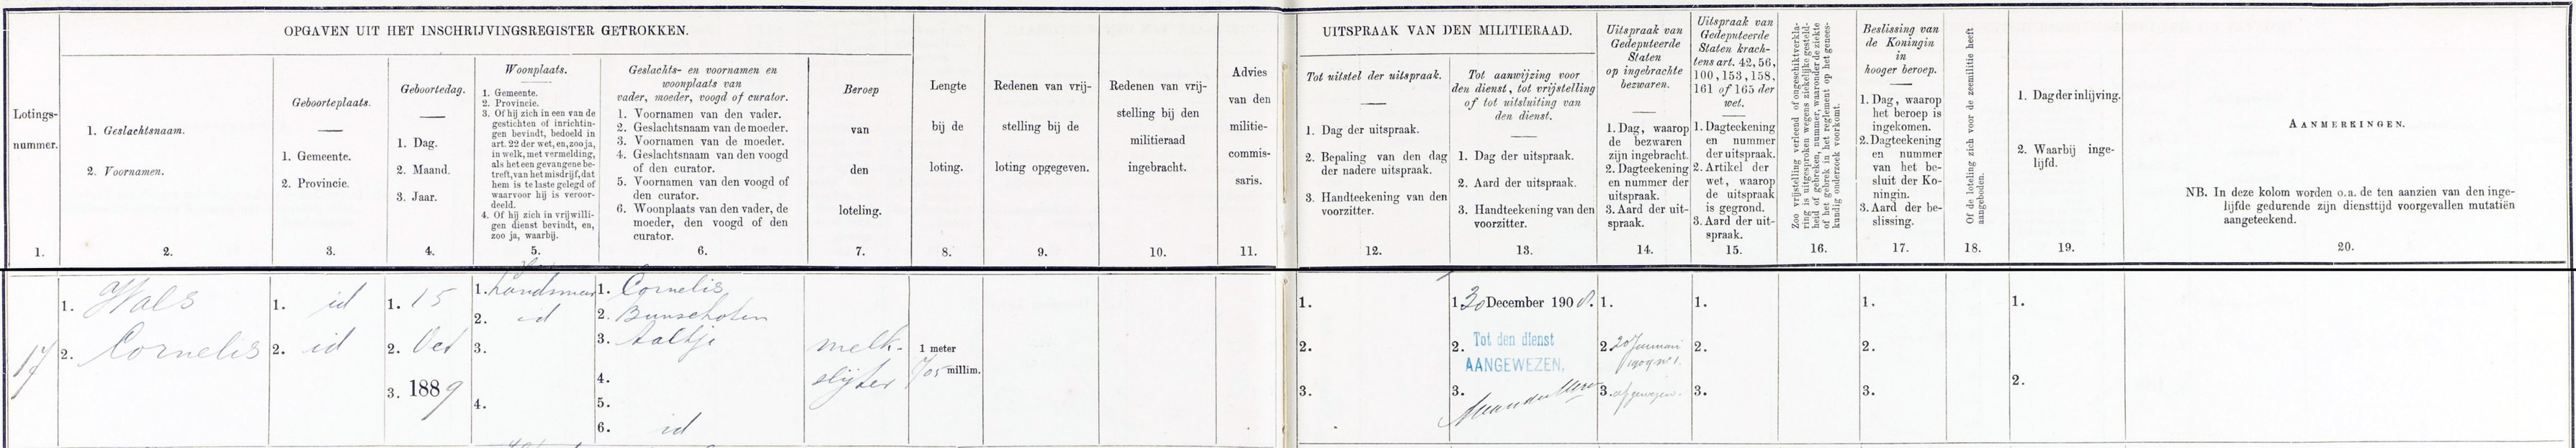 OPGAVEN UIT HET INSCHRIJVINGSREGISTER GETROKKEN.
Lotings-
nummer.
1.
1. Geslachtsnaam.
2. Voornamen.
2.
Geboorteplaats.
1. Gemeente.
2. Provincie.
3.
Geboortedag.
1. Dag.
2. Maand.
3. Jaar.
4.
Woonplaats.
1. Gemeente.
2. Provincie.
3. Of hij zich in een van de
gestichten of inrichtin-
gen bevindt, bedoeld in
art. 22 der wet, en, zoo ja,
in welk, met vermelding,
als het een gevangene be-
treft, van het misdrijf, dat
hem is te laste gelegd of
waarvoor hij is veroor-
deeld.
4. Of hij zich in vrijwilli-
gen dienst bevindt, en,
zoo ja, waarbij.
5.
Geslachts- en voornamen en
woonplaats van
vader, moeder, voogd of curator.
1. Voornamen van den vader.
2. Geslachtsnaam van de moeder.
3. Voornamen van de moeder.
4. Geslachtsnaam van den voogd
of den curator.
5. Voornamen van den voogd of
den curator.
6. Woonplaats van den vader, de
moeder, den voogd of den
curator.
6.
Beroep
van
den
loteling.
7.
Lengte
bij de
loting.
8.
Redenen van vrij-
stelling bij de
loting opgegeven.
9.
Redenen van vrij-
stelling bij den
militieraad
ingebracht.
10.
Advies
van den
militie-
commis-
saris.
11.
UITSPRAAK VAN DEN MILITIERAAD.
Tot uitstel der uitspraak.
1. Dag der uitspraak.
2. Bepaling van den dag
der nadere uitspraak.
3. Handteekening van den
voorzitter.
12.
Tot aanwijzing voor
den dienst, tot vrijstelling
of tot uitsluiting van
den dienst.
1. Dag der uitspraak.
2. Aard der uitspraak.
3. Handteekening van den
voorzitter.
13.
Uitspraak van
Gedeputeerde
Staten
op ingebrachte
bezwaren.
1. Dag, waarop
de bezwaren
zijn ingebracht.
2. Dagteekening
en nummer der
uitspraak.
3. Aard der uit-
spraak.
14.
Uitspraak van
Gedeputeerde
Staten krach-
tens art. 42, 56,
100, 153, 158,
161 of 165 der
wet.
1. Dagteekening
en nummer
der uitspraak.
2. Artikel der
wet, waarop
de uitspraak
is gegrond.
3. Aard der uit-
spraak.
15.
Zoo vrijstelling verleend of ongeschiktverkla-
ring is uitgesproken wegens ziekelijke gesteld-
heid of gebreken, nummer, waaronder de ziekte
of het gebrek in het reglement op het genees-
kundig onderzoek voorkomt.
16.
Beslissing van
de Koningin
in
hooger beroep.
1. Dag, waarop
het beroep is
ingekomen.
2. Dagteekening
en nummer
van het be-
sluit der Ko-
ningin.
3. Aard der be-
slissing.
17.
Of de loteling zich voor de zeemilitie heeft
aangeboden.
18.
1. Dag der inlijving.
2. Waarbij inge-
lijfd.
19.
AANMERKINGEN.
NB. In deze kolom worden o.a. de ten aanzien van den inge-
lijfde gedurende zijn diensttijd voorgevallen mutatiën
aangeteekend.
20.
17
1. Hals
2. Cornelis
1. id
2. id
1. 15
2. Oct
3. 1889
1.
2. id
3.
4.
1. Cornelis
2. Bunschoten
3. Aaltje
4.
5.
6. id
melk-
slijter
1 meter
705 millim.
1.
2.
3.
1. 30 December 1908.
2. Tot den dienst
AANGEWEZEN.
3.
1.
2. 20 Januari
1909 n° 1.
3. afgewezen.
1.
2.
3.
1.
2.
3.
1.
2.